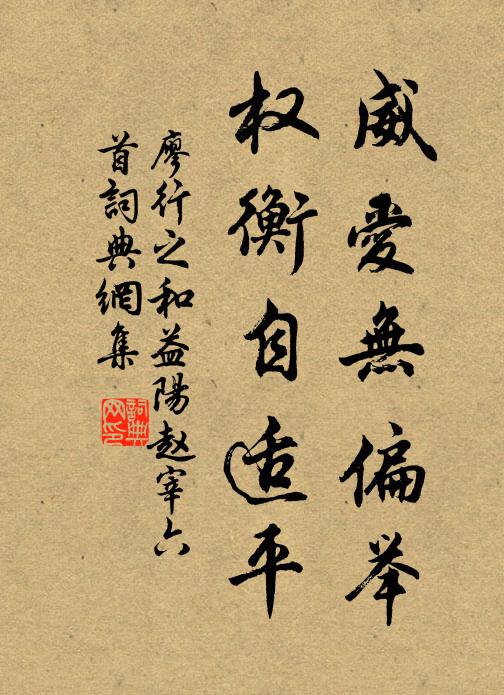 威愛無偏举
权衡自适平
廖行之和益陽赵宰六
首詞典網集
詞典网印